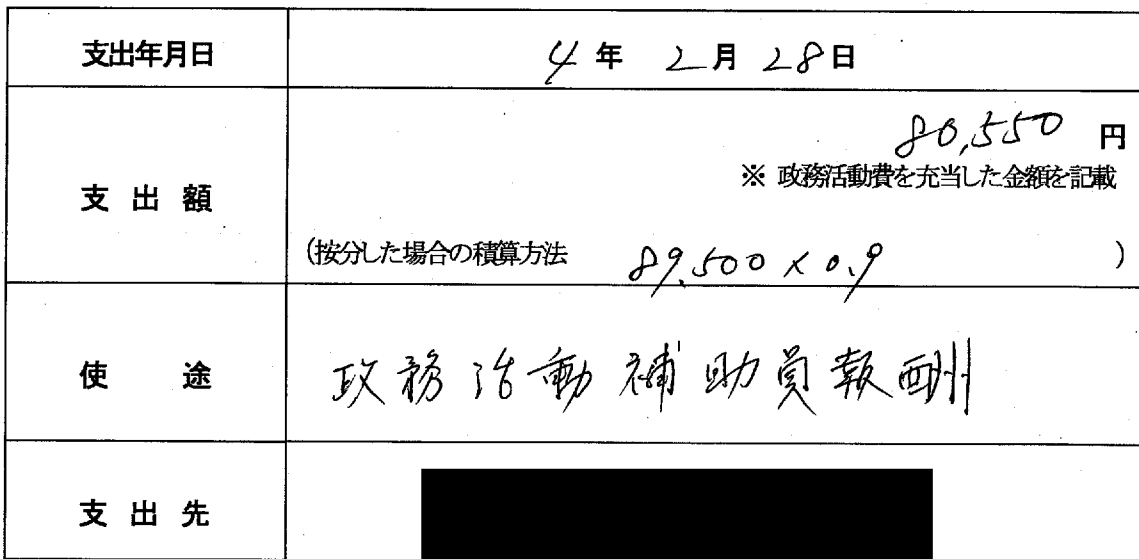 支出年月日 4年 2月 28日
80,550 円
※ 政務活動費を充当した金額を記載
支出額
(按分した場合の積算方法 89,500 × 0.9 )
使途 政務活動補助員報酬
支出先